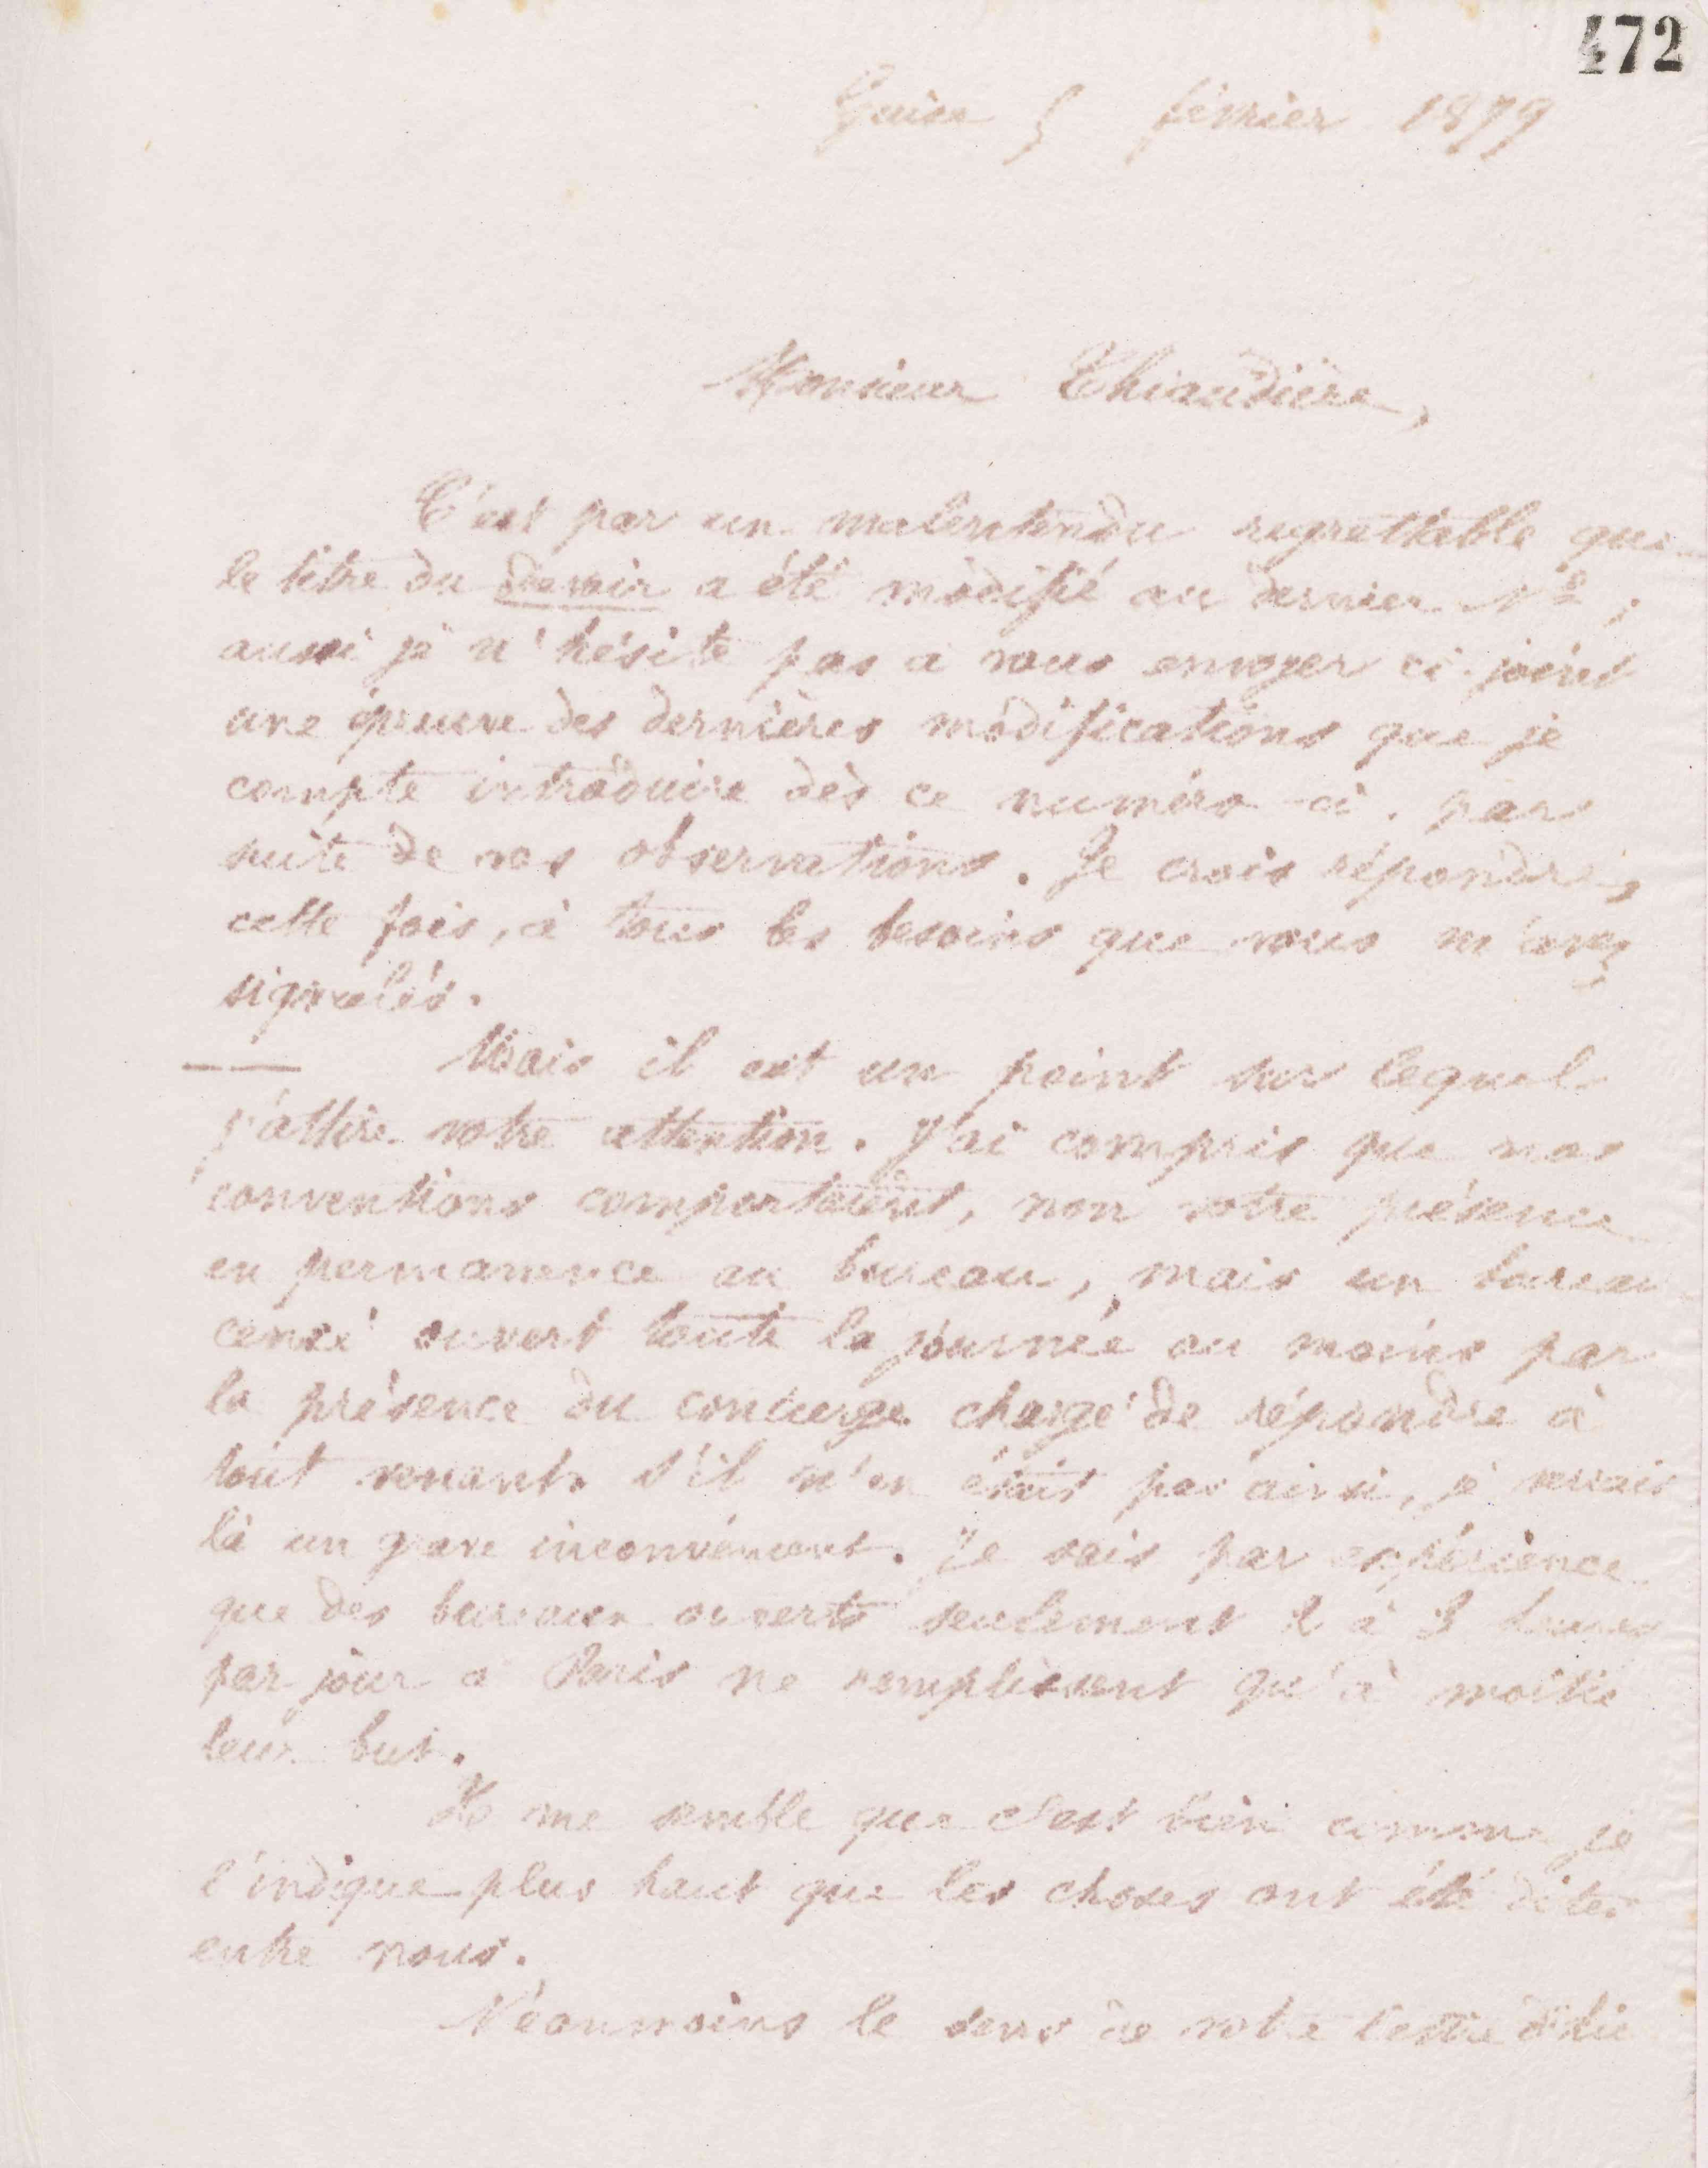 472
Guise 5 février 1879
Monsieur Thiaudière,
C'est par un malentendu regrettable que
le titre du devoir a été modifié au dernier N°,
aussi je n'hésite pas a vous envoyer ci-joint
une épreuve des dernières modifications que je
compte introduire dès ce numéro-ci. par
suite de vos observations. Je crois répondre,
cette fois, à tous les besoins que vous m'avez
signalés.
Mais il est un point sur lequel
j'attire votre attention. J'ai compris que nos
conventions comportaient, non votre présence
en permanence au bureau, mais un bureau
censé ouvert toute la journée au moins par
la présence du concierge chargé de répondre à
tout venant. S'il n'en était pas ainsi, je verrais
là un grave inconvénient. Je sais par expérience
que des bureaux ouverts seulement 2 à 3 heures
par jour à Paris ne remplissent qu'à moitié
leur but.
Il me semble que c'est bien comme je
l'indique plus haut que les choses ont été dites
entre nous.
Néanmoins le sens de votre lettre